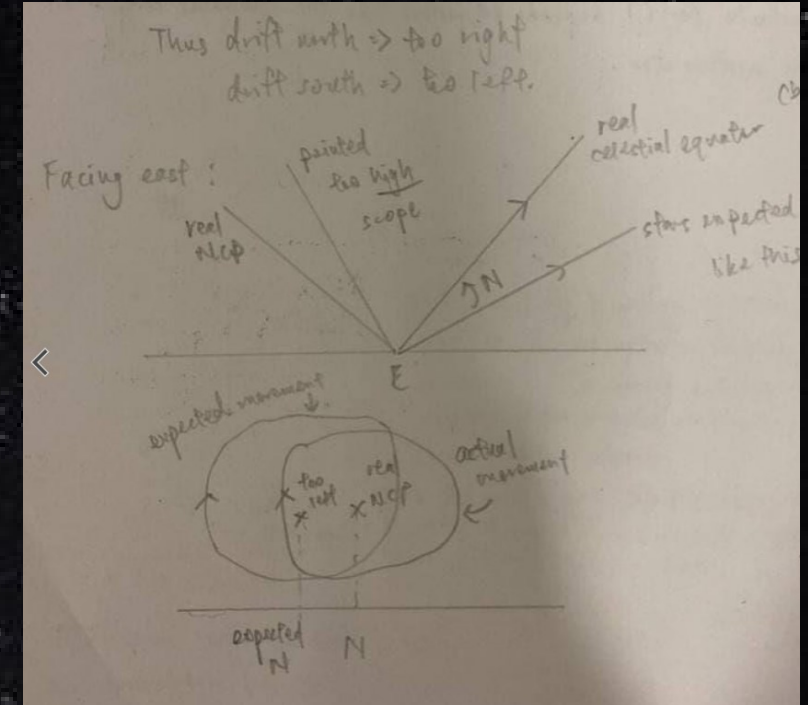 Thus drift north => too right
drift south => too left.
(b
Facing east :
real
NCP
pointed
too high
scope
real
celestial equator
stars expected
like this
N
E
expected movement
too
left
real
NCP
actual
movement
expected
N
N